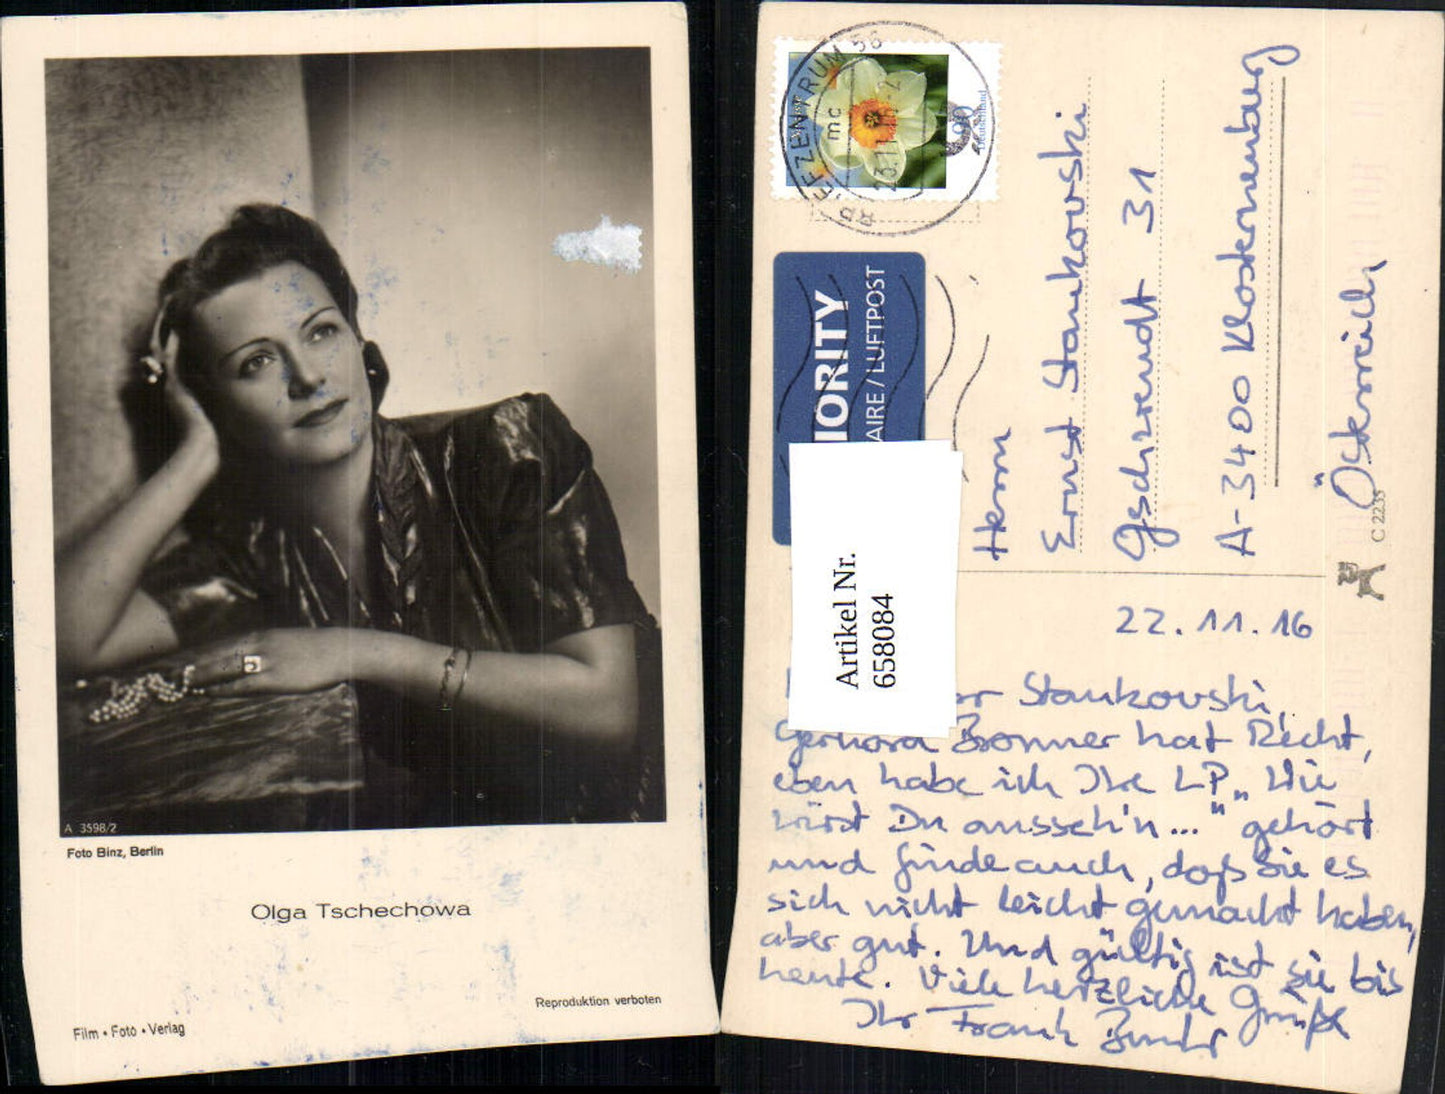 A 3598/2
Foto Binz, Berlin
Olga Tschechowa
Reproduktion verboten
Film • Foto • Verlag
BRIEFZENTRUM 56
mc
23.11.16
90
Deutschland
IORITY
AIRE / LUFTPOST
Artikel Nr.
658084
Herrn
Ernst Stankovski
Gschwendt 31
A-3400 Klosterneuburg
Österreich
C 2235
22.11.16
Stankovski,
Gerhard Bronner hat Recht,
eben habe ich Ihre LP „Wie
wirst Du ausseh'n..." gehört
und finde auch, daß Sie es
sich nicht leicht gemacht haben,
aber gut. Und gültig ist sie bis
heute. Viele herzliche Grüße
Ihr Frank